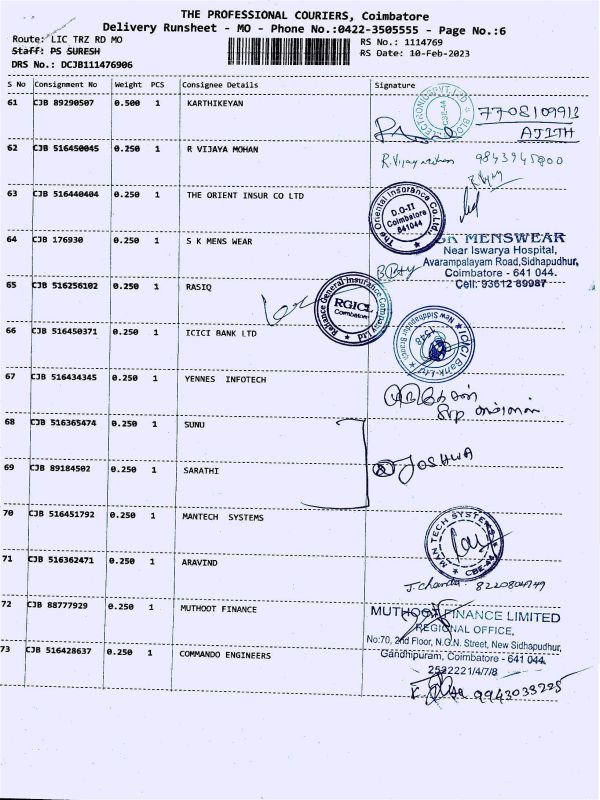 THE PROFESSIONAL COURIERS, Coimbatore
Delivery Runsheet - MO - Phone No.:0422-3505555 - Page No.:6
Route: LIC TRZ RD MO
RS No.: 1114769
Staff: PS SURESH
RS Date: 10-Feb-2023
DRS No.: DCJB111476906
S No Consignment No Weight PCS Consignee Details Signature
61 CJB 89290507 0.500 1 KARTHIKEYAN
7708109913
AJITH
62 CJB 516450045 0.250 1 R VIJAYA MOHAN
R.Vijayamohan 9843945800
63 CJB 516440404 0.250 1 THE ORIENT INSUR CO LTD
The Oriental Insurance Co.Ltd.
D.O-II
Coimbatore
641044
64 CJB 176930 0.250 1 S K MENS WEAR
SK MENSWEAR
Near Iswarya Hospital,
Avarampalayam Road,Sidhapudhur,
Coimbatore - 641 044.
Cell: 93612 89987
65 CJB 516256102 0.250 1 RASIQ
Reliance General Insurance Company Ltd
RGICL
Coimbatore
66 CJB 516450371 0.250 1 ICICI BANK LTD
ICICI Bank-Ltd New Siddhapudur Branch
67 CJB 516434345 0.250 1 YENNES INFOTECH
68 CJB 516365474 0.250 1 SUNU
69 CJB 89184502 0.250 1 SARATHI
JOSHWA
70 CJB 516451792 0.250 1 MANTECH SYSTEMS
MAN TECH SYSTEMS
CBE-44
71 CJB 516362471 0.250 1 ARAVIND
J.Chandra
72 CJB 88777929 0.250 1 MUTHOOT FINANCE
MUTHOOT FINANCE LIMITED
REGIONAL OFFICE,
No:70, 2nd Floor, N.G.N. Street, New Sidhapudhur,
Gandhipuram, Coimbatore - 641 044.
2522221/4/7/8
73 CJB 516428637 0.250 1 COMMANDO ENGINEERS
9943033225